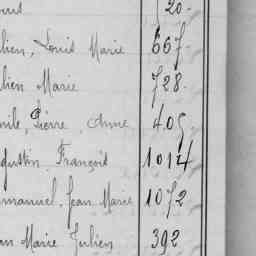 20.
lien, Louis Marie 667.
lien Marie 728.
mile, Pierre, Anne 405
gustin, François 1014
mmanuel, Jean Marie 1072
an Marie Julien 392